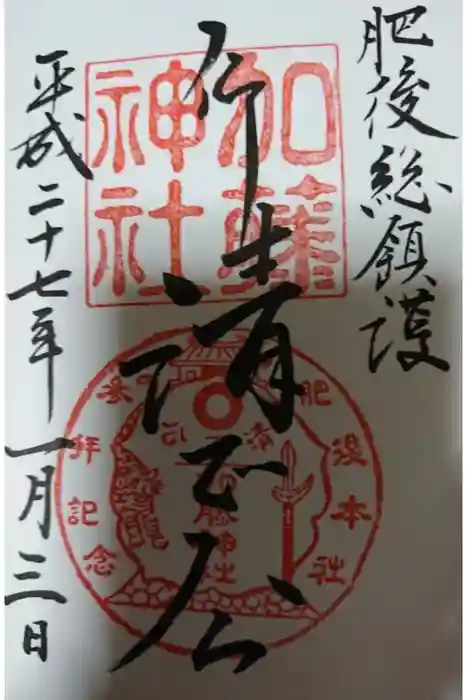 肥後総鎮護
清正公
平成二十七年一月三日
加藤
神社
肥後本社
参拝記念